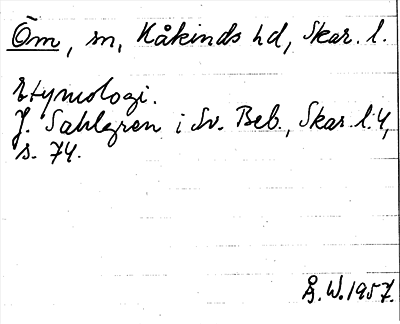 Öm, sn, Kåkinds hd, Skar. l.
Etymologi.
J. Sahlgren i Sv. Beb., Skar. l. 4,
s. 74.
Å. W. 1957.